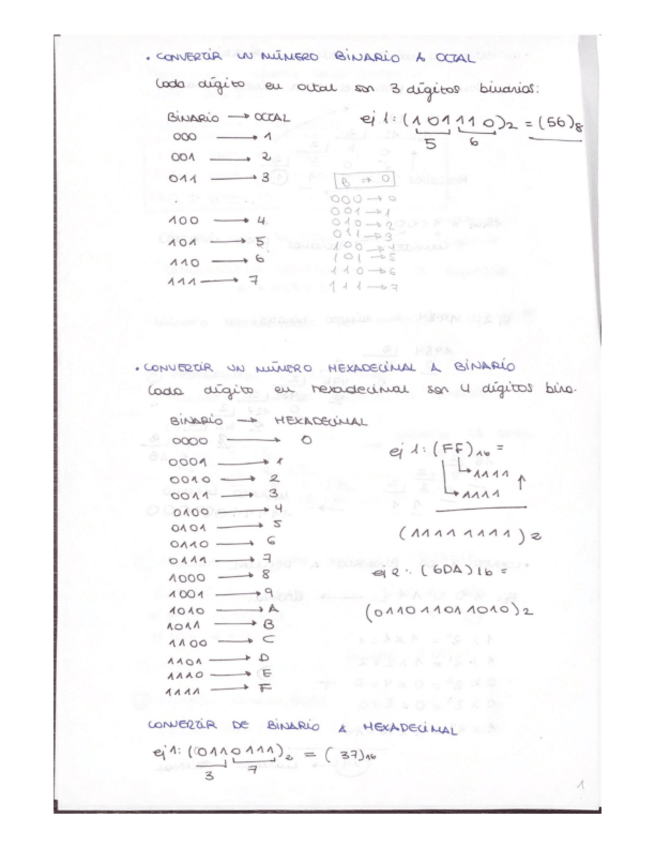 · CONVERTIR UN NÚMERO BINARIO A OCTAL
Cada dígito en octal son 3 dígitos binarios:
BINARIO → OCTAL
000 → 1
001 → 2
011 → 3
100 → 4
101 → 5
110 → 6
111 → 7
ej 1: (101110)2 = (56)8
5 6
B → O
000 → 0
001 → 1
010 → 2
011 → 3
100 → 4
101 → 5
110 → 6
111 → 7
· CONVERTIR UN NÚMERO HEXADECIMAL A BINARIO
Cada dígito en hexadecimal son 4 dígitos bina.
BINARIO → HEXADECIMAL
0000 → 0
0001 → 1
0010 → 2
0011 → 3
0100 → 4
0101 → 5
0110 → 6
0111 → 7
1000 → 8
1001 → 9
1010 → A
1011 → B
1100 → C
1101 → D
1110 → E
1111 → F
ej 1: (FF)16 =
→ 1111
→ 1111 ↑
(1111 1111)2
ej 2: (6DA)16 =
(011011011010)2
CONVERTIR DE BINARIO A HEXADECIMAL
ej 1: (0110111)2 = (37)16
3 7
1